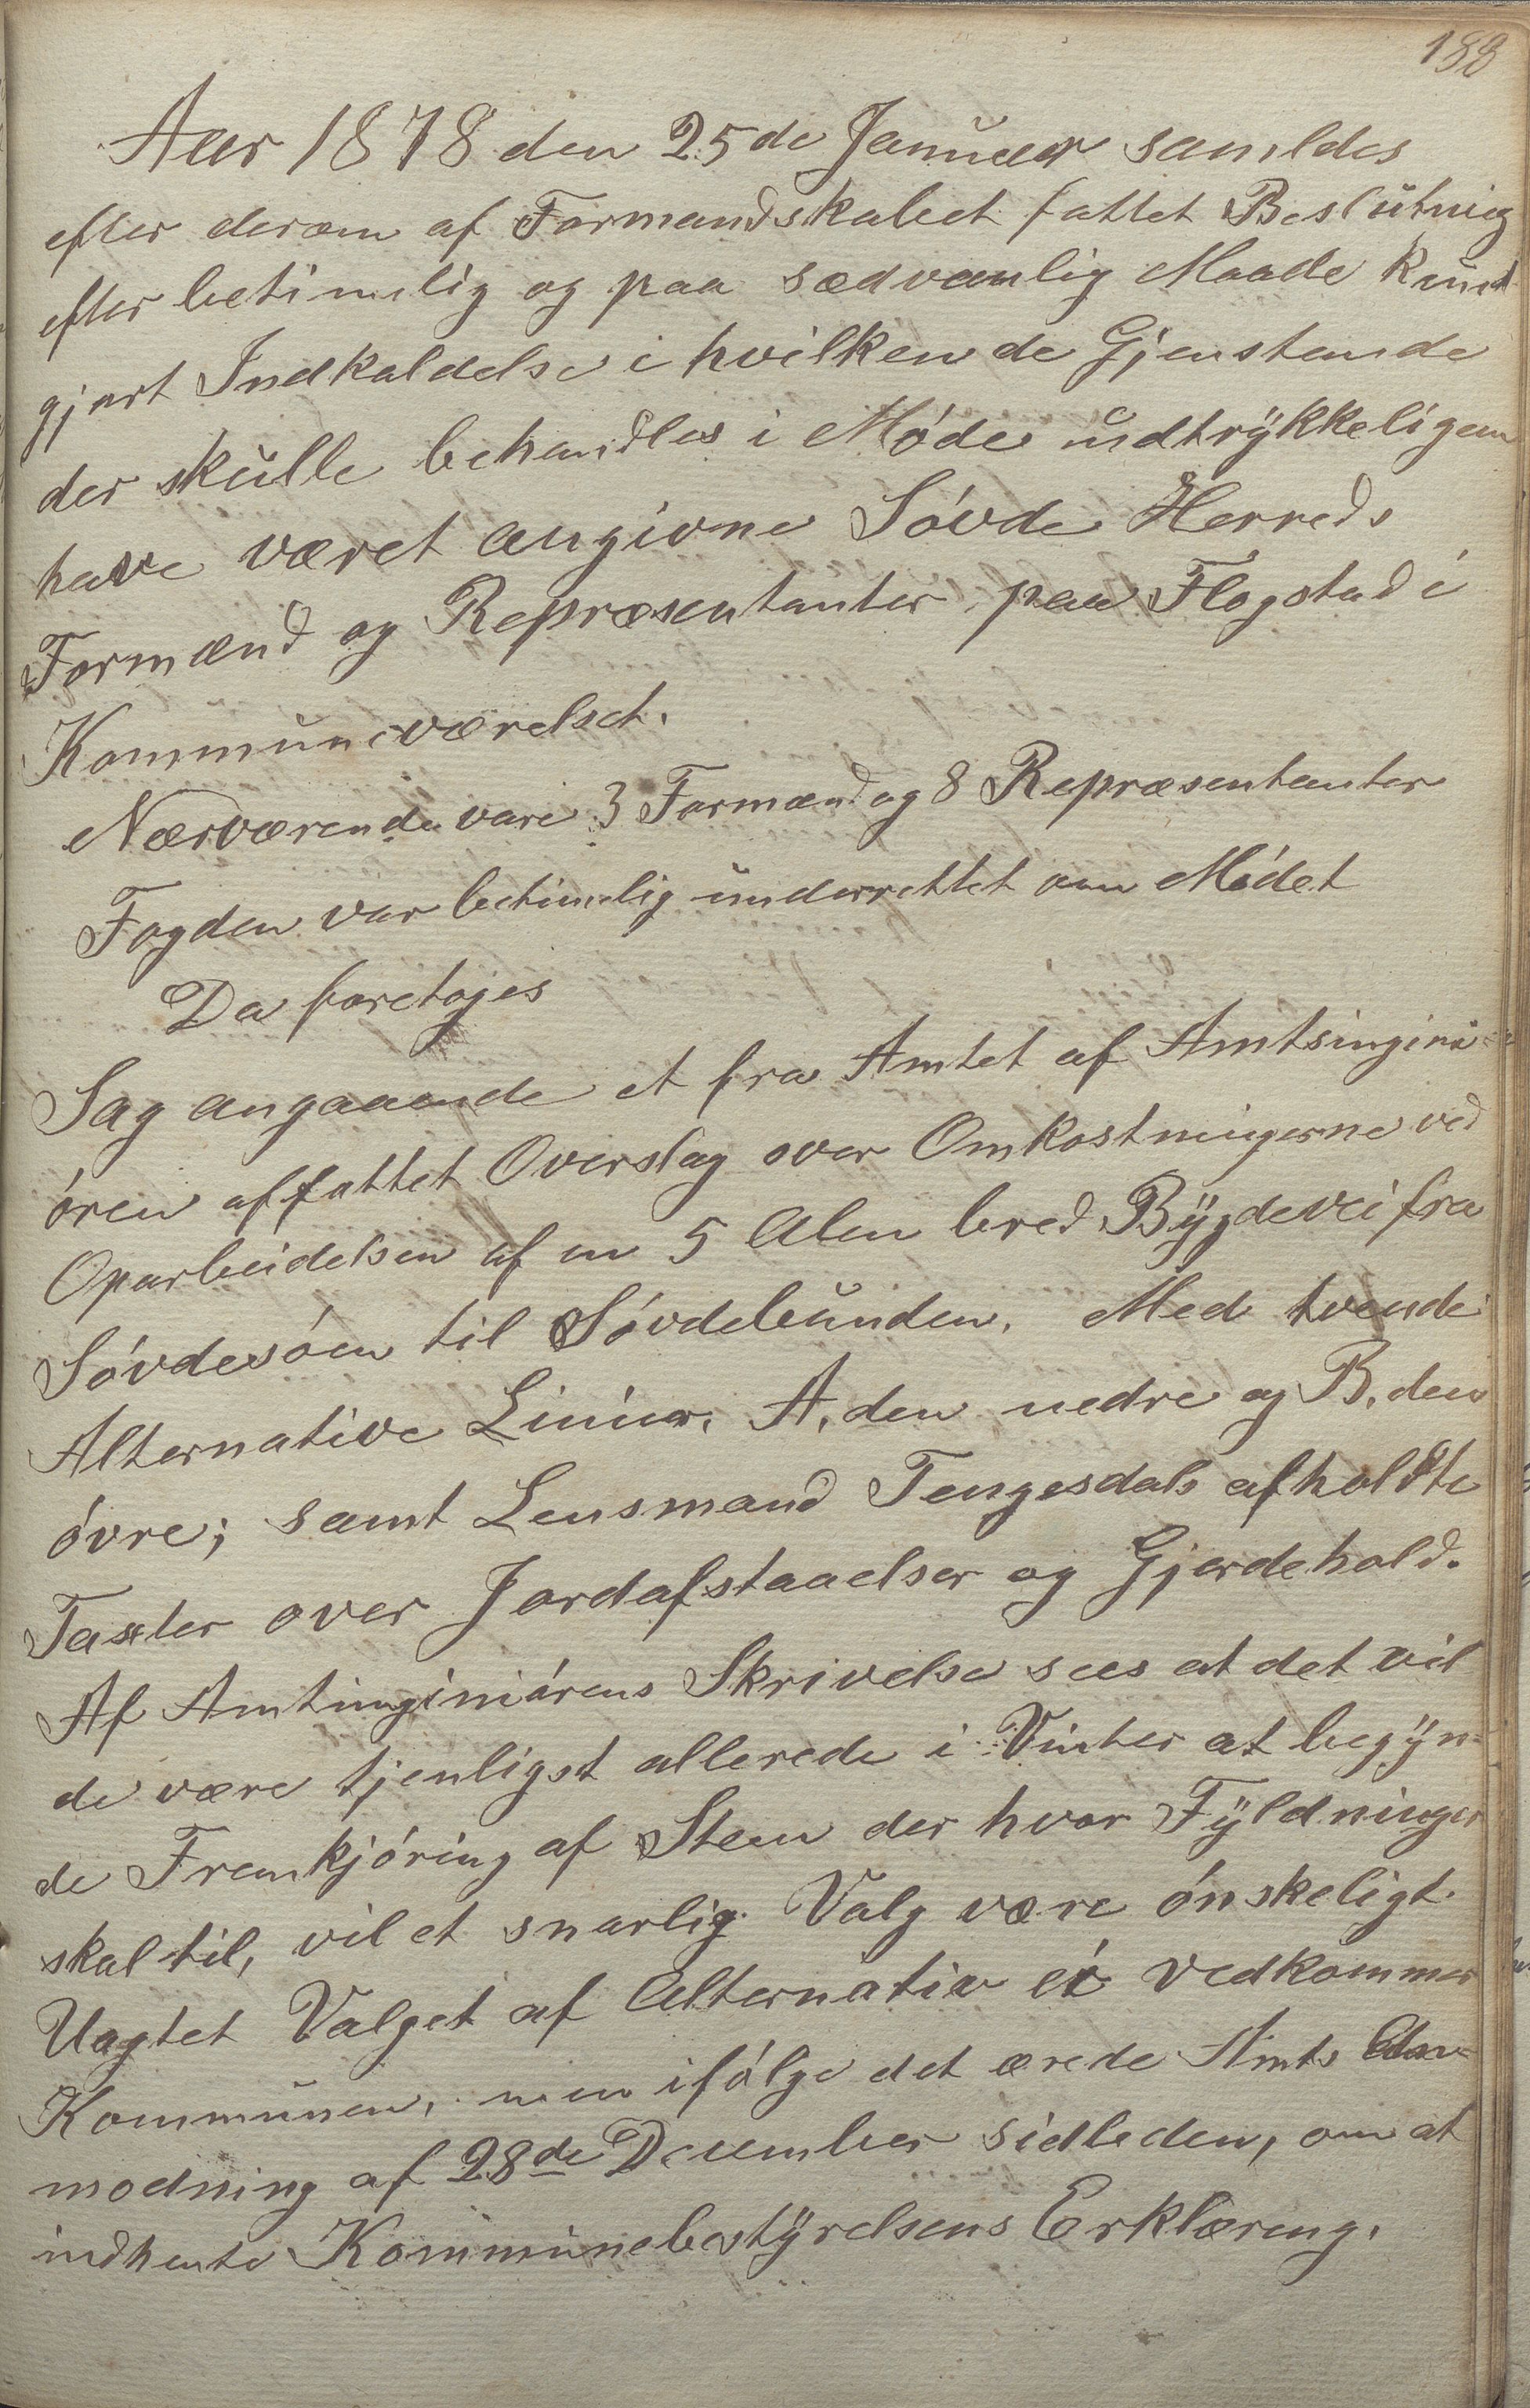 188
Aar 1878 den 25de Januar samldes
efter derom af Formandskabet fattet Beslutning
efter betimelig og paa sædvanlig Maade kund
gjort Indkaldelse i hvilken de Gjenstande
der skulle behandles i Møde udtrykkeligen
have været angivne Søvde Herreds
Formænd og Repræsentanter paa Flogstad i
Kommuneværelset.
Nærværende vare 3 Formænd og 8 Repræsentanter
Fogden var betimelig underrettet om Mødet
Da foretoges
Sag angaaende et fra Amtet af Amtsingini
øren affattet Overslag over Omkostningerne ved
Oparbeidelsen af en 5 Alen bred Bygdevei fra
Søvdesøen til Søvdebunden. Med tvende
Alternative Linier. A, den nedre og B, den
øvre; samt Lensmand Tengesdals afholdte
Taxter over Jordafstaaelser og Gjerdehold.
Af Amtinginiørens Skrivelse sees at det vil
de være tjenligst allerede i Vinter at begyn-
de Fremkjøring af Sten der hvor Fyldninger
skal til, vil et snarlig Valg være ønskeligt.
Uagtet Valget af Alternativ ei vedkommer
Kommunen, men ifølge det ærede Amts An-
modning af 28de December sidleden, om at
indhente Kommunebestyrelsens Erklæring.